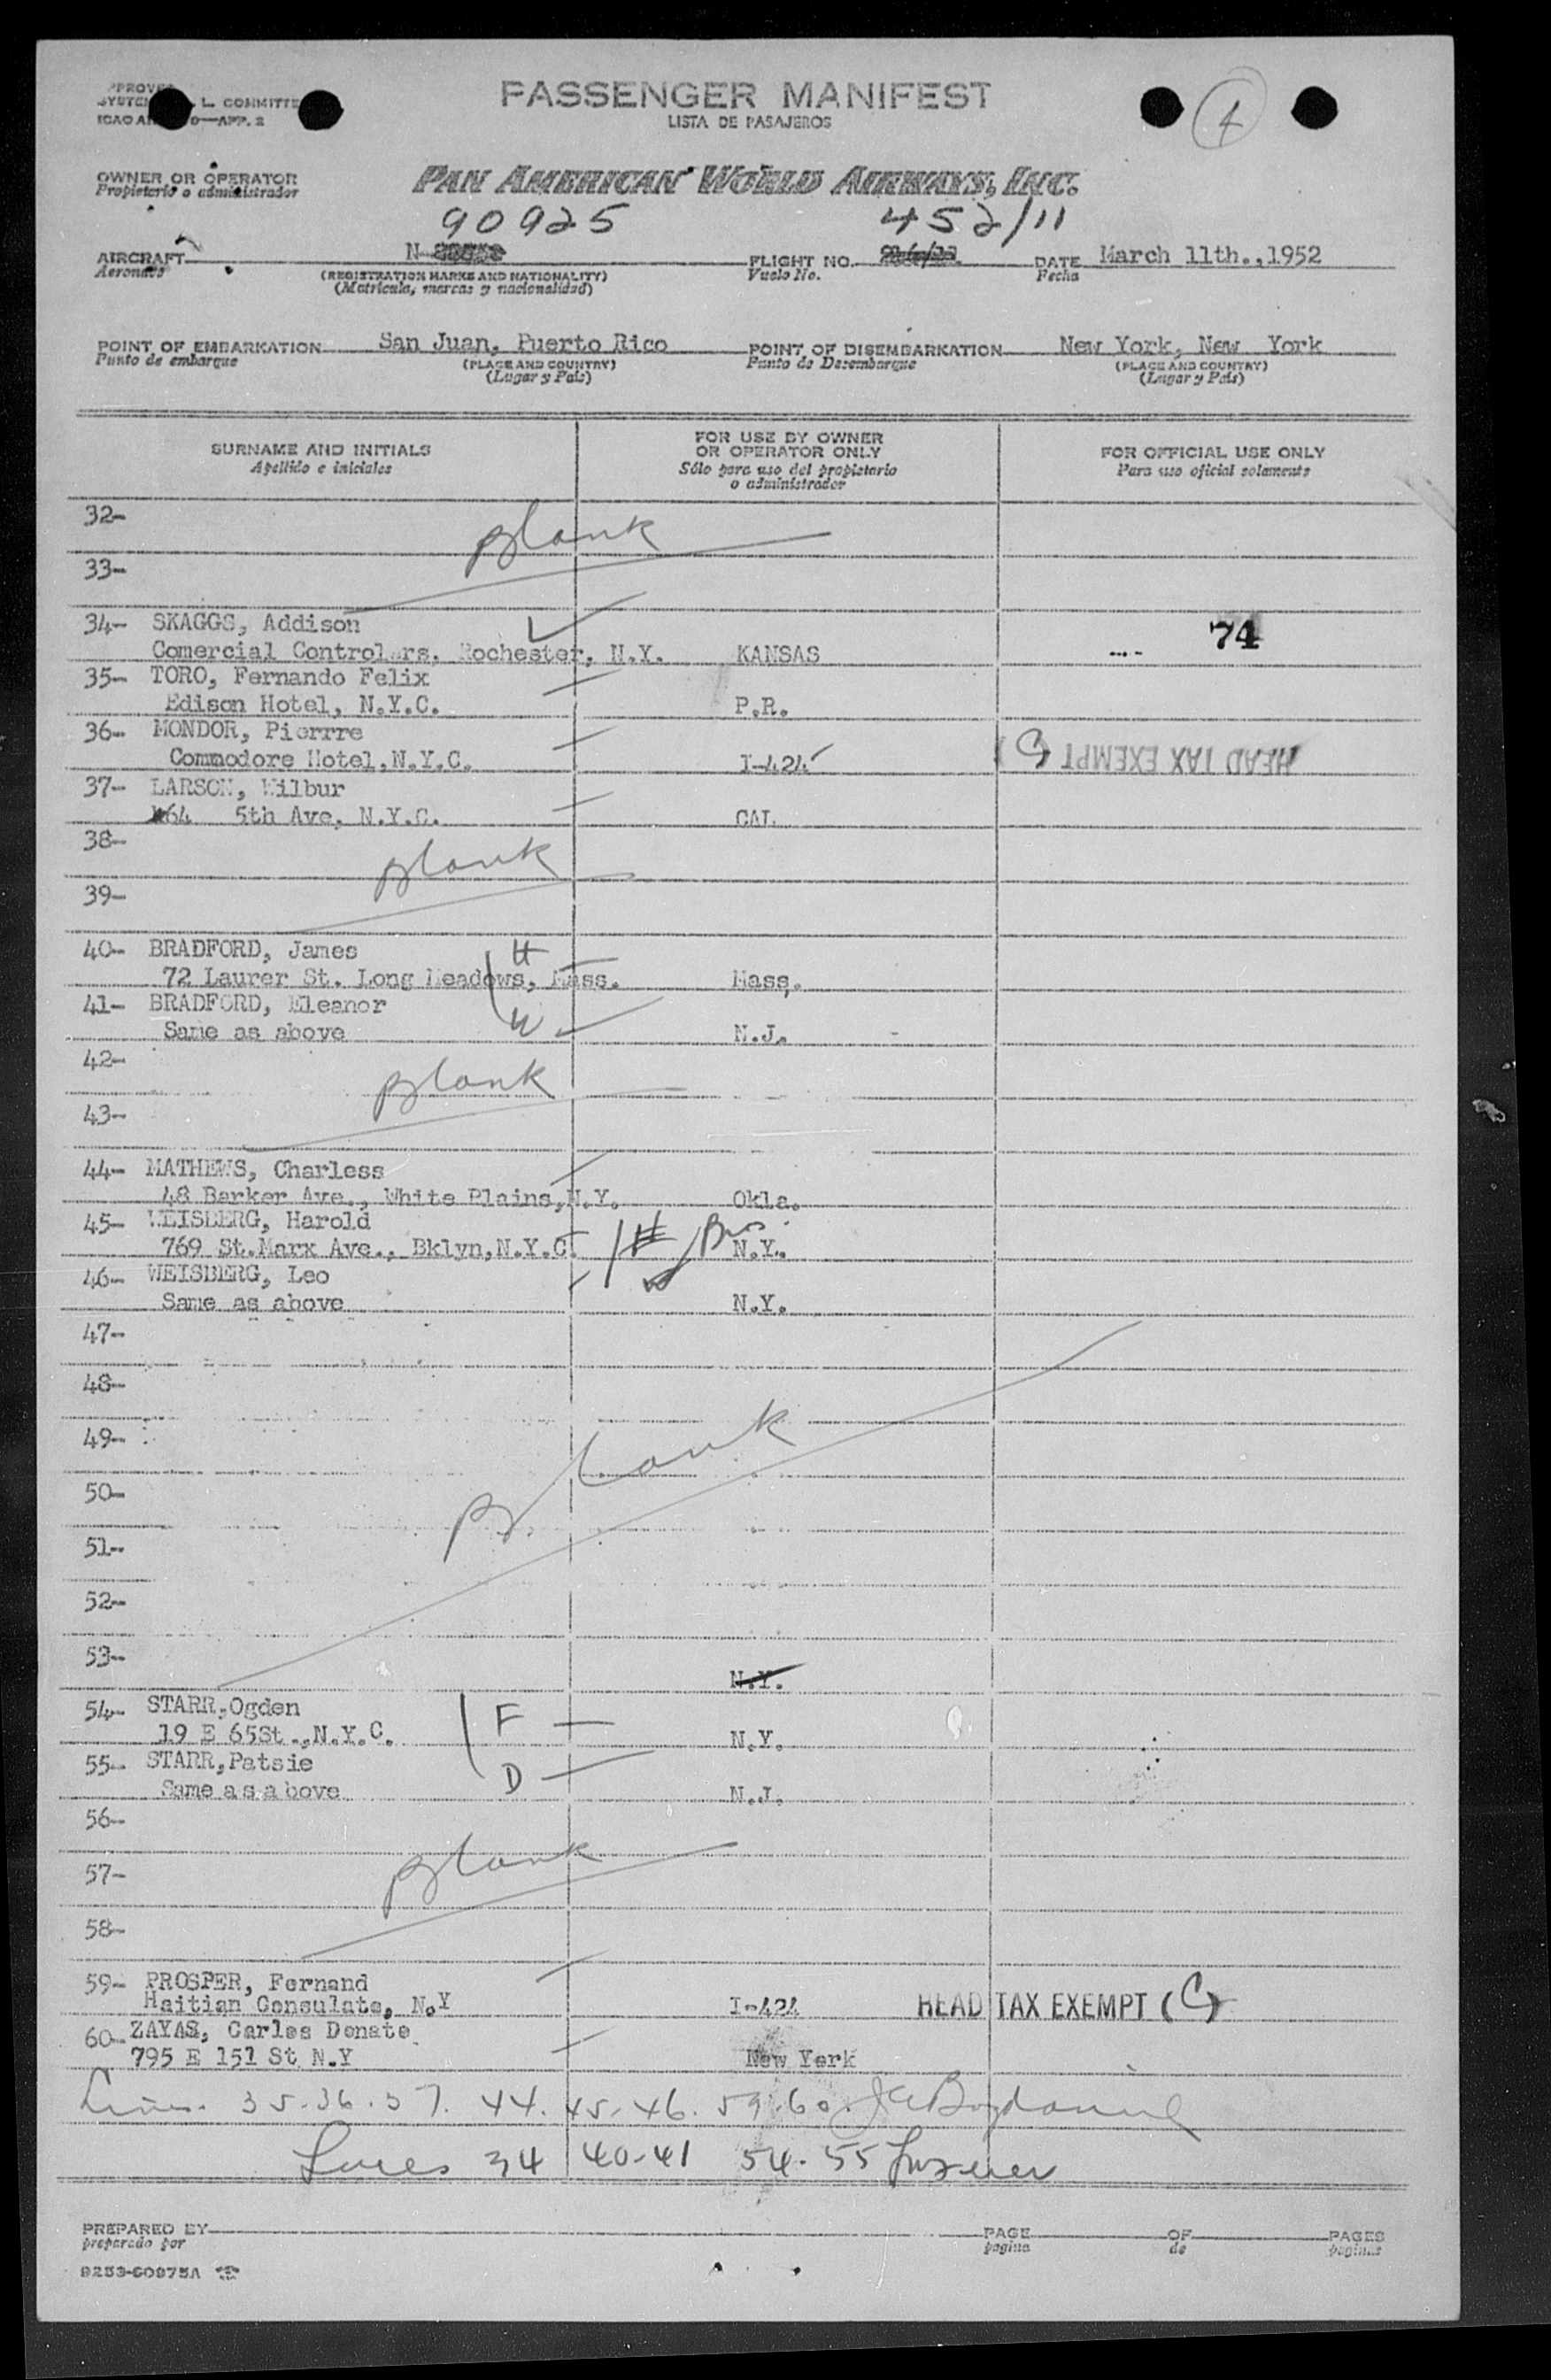 PASSENGER MANIFEST
LISTA DE PASAJEROS
4
L. COMMITTE
APP. 2
OWNER OR OPERATOR
Propietario o administrador
PAN AMERICAN WORLD AIRWAYS, INC.
90925
452/11
AIRCRAFT N-
Aeronave
(REGISTRATION MARKS AND NATIONALITY)
(Matricula, marcas y nacionalidad)
FLIGHT NO.
Vuelo No.
DATE March 11th.,1952
Fecha
POINT OF EMBARKATION San Juan, Puerto Rico
Punto de embarque
(PLACE AND COUNTRY)
(Lugar y País)
POINT OF DISEMBARKATION New York, New York
Punto de Desembarque
(PLACE AND COUNTRY)
(Lugar y País)
SURNAME AND INITIALS
Apellido e iniciales
FOR USE BY OWNER
OR OPERATOR ONLY
Sólo para uso del propietario
o administrador
FOR OFFICIAL USE ONLY
Para uso oficial solamente
32-
Blank
33-
34- SKAGGS, Addison
74
Comercial Controlers. Rochester, N.Y. KANSAS
35- TORO, Fernando Felix
Edison Hotel, N.Y.C. P.R.
36- MONDOR, Pierrre
Commodore Hotel,N.Y.C. I-424 HEAD TAX EXEMPT (C)
37- LARSON, Wilbur
464 5th Ave, N.Y.C. CAL
38-
Blank
39-
40- BRADFORD, James H
72 Laurer St. Long Meadows, Mass. Mass.
41- BRADFORD, Eleanor
Same as above W N.J.
42-
Blank
43-
44- MATHEWS, Charless
48 Barker Ave., White Plains,N.Y. Okla.
45- WEISBERG, Harold
Bros.
769 St.Marx Ave., Bklyn,N.Y.C. H N.Y.
46- WEISBERG, Leo W
Same as above N.Y.
47-
48-
49-
Blank
50-
51-
52-
53-
N.Y.
54- STARR,Ogden F
19 E 65St.,N.Y.C. N.Y.
55- STARR,Patsie D
Same as above N.J.
56-
Blank
57-
58-
59- PROSPER, Fernand
Haitian Consulate, N.Y I-424 HEAD TAX EXEMPT (C)
60- ZAYAS, Carlos Donate
795 E 151 St N.Y New York
Lines. 35-36-37. 44. 45-46. 59-60.
Lines 34 40-41 54-55
PREPARED BY
preparado por
PAGE
pagina
OF
de
PAGES
paginas
9253-60975A